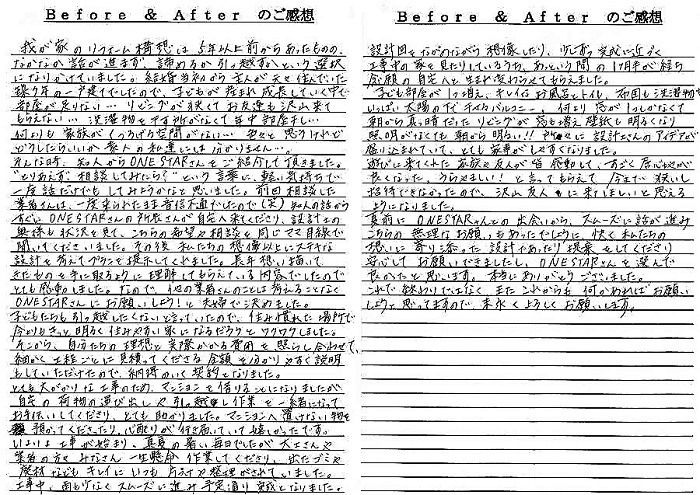 Before & After のご感想
我が家のリフォーム構想は5年以上前からあったものの、
なかなか話が進まず、諦めるか引っ越すかという選択
になりかけていました。結婚当初から主人が天を住んでいた
築9年の一戸建てでしたので、子どもが産まれ成長していく中で
部屋が足りない… リビングが狭くてお友達も沢山来て
もらえない… 洗濯物を干す所がなくて年中部屋干し…
何よりも家族がくつろげる空間がない… 色々と思うけれど
どうしたらいいか素人の私達には分かりません…。
そんな時、知人からONE STARさんをご紹介して頂きました。
"とりあえず相談してみたら?"という言葉に、軽い気持ちで
一度話だけでもしてみようかなと思いました。前回相談した
業者さんは、一度来られたまま音信不通でしたので(笑)知人の話から
すぐにONESTARさんの所長さんが自宅へ来てくださり、設計士の
奥様も状況を見て、こちらの希望や相談を同じママ目線で
聞いてくださいました。その後私たちの想像以上にステキな
設計を考えてプランを提示してくれました。長年想い描いて
きたものを手に取るように理解してもらえている内容でしたので
とても感動しました。なので、他の業者さんのことは考えることなく
ONESTARさんにお願いしよう!と夫婦で決めました。
子どもたちも引っ越したくないと言っていたので、住み慣れた場所で
今よりもっと明るく住みやすい家になるだろうとワクワクしました。
そこから、自分たちの理想と実際かかる費用を照らし合わせて、
細かく工程ごとに見積ってくださる金額を分かりやすく説明
もしていただけたので、納得のいく契約となりました。
とても大がかりな工事のため、マンションを借りることになりましたが
自宅の荷物の運び出しや引っ越し作業を一緒になって
お手伝いしてくださり、とても助かりました。マンションへ置けない物を
預かってくださったり、心配りが行き届いていて嬉しかったです。
いよいよ工事が始まり、真夏の暑い毎日でしたが大工さんや
業者の方々みなさん一生懸命作業してくださり、出たゴミや
廃材などもキレイにいつも片づけや整理がされていました。
工事中、雨もげなくスムーズに進み予定通り完成となりました。
Before & After のご感想
設計図をながめながら想像したり、少しずつ完成に近づく
工事中の家を見たりしているうち、あっという間の1ヶ月半が経ち
念願の自宅へと生まれ変わらせてもらえました。
子ども部屋が1つ増え、キレイなお風呂とトイレ、布団も洗濯物も
いっぱい太陽のあびれるバルコニー、何より窓が1つしかなくて
朝から真っ暗だったリビングが窓も増え壁紙も明るくなり
照明がなくても朝から明るい!! 所々に設計士さんのアイデアが
盛り込まれていて、とても家事がしやすくなりました。
遊びに来てくれた家族や友人が皆感動して、すごく居心地が
良くなった、うらやましい!と言ってもらえて今まで狭いし
招待できなかったので、沢山友人に来てほしいと思える
ようになりました。
最初にONESTARさんとの出会いから、スムーズに話が進み
こちらの無理なお願いもあったでしょうに、快く私たちの
想いに寄り添った設計であったり提案をしてくださり
安心してお願いできましたし、ONESTARさんを選んで
良かったと思います。本当にありがとうございました。
これで終わりではなく、またこれからも何かあればお願い
しようと思ってますので、末永くよろしくお願いします。